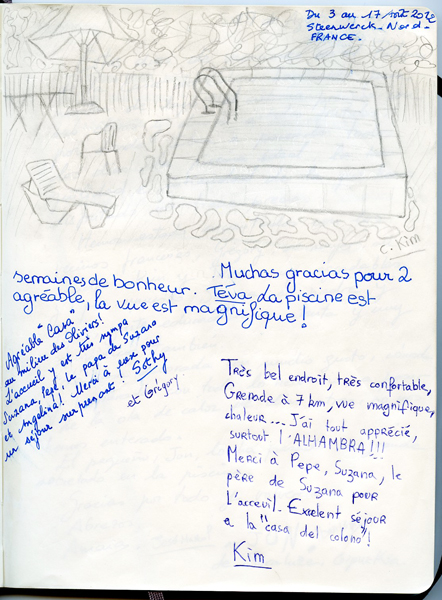 Du 3 au 17 Août 2012
Steenwerck - Nord -
FRANCE.
C. Kim
Muchas gracias pour 2
semaines de bonheur. Téva La piscine est
agréable, la vue est magnifique !
Agréable "Casa"
au milieu des Oliviers !
L'accueil y est très sympa
Suzana, Pepe, le papa de Suzano
et Angelina ! Merci à eux pour
un séjour surprenant ! Sothy
et Grégory
Très bel endroit, très confortable,
Grenade à 7 km, vue magnifique,
chaleur... J'ai tout apprécié,
surtout l'ALHAMBRA !!!
Merci à Pepe, Suzana, le
père de Suzana pour
L'acceuil. Excelent séjour
a la "casa del colono" !
Kim